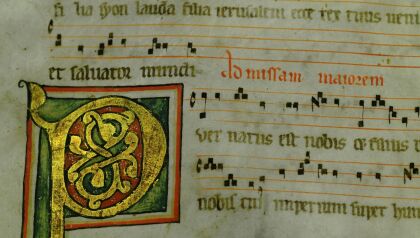 fi lia syon lauda filia ierusalem ecce rex tuus ueni
et saluator mundi. Ad missam maiorem
P uer natus est nobis et filius
nobis cui imperium super hum